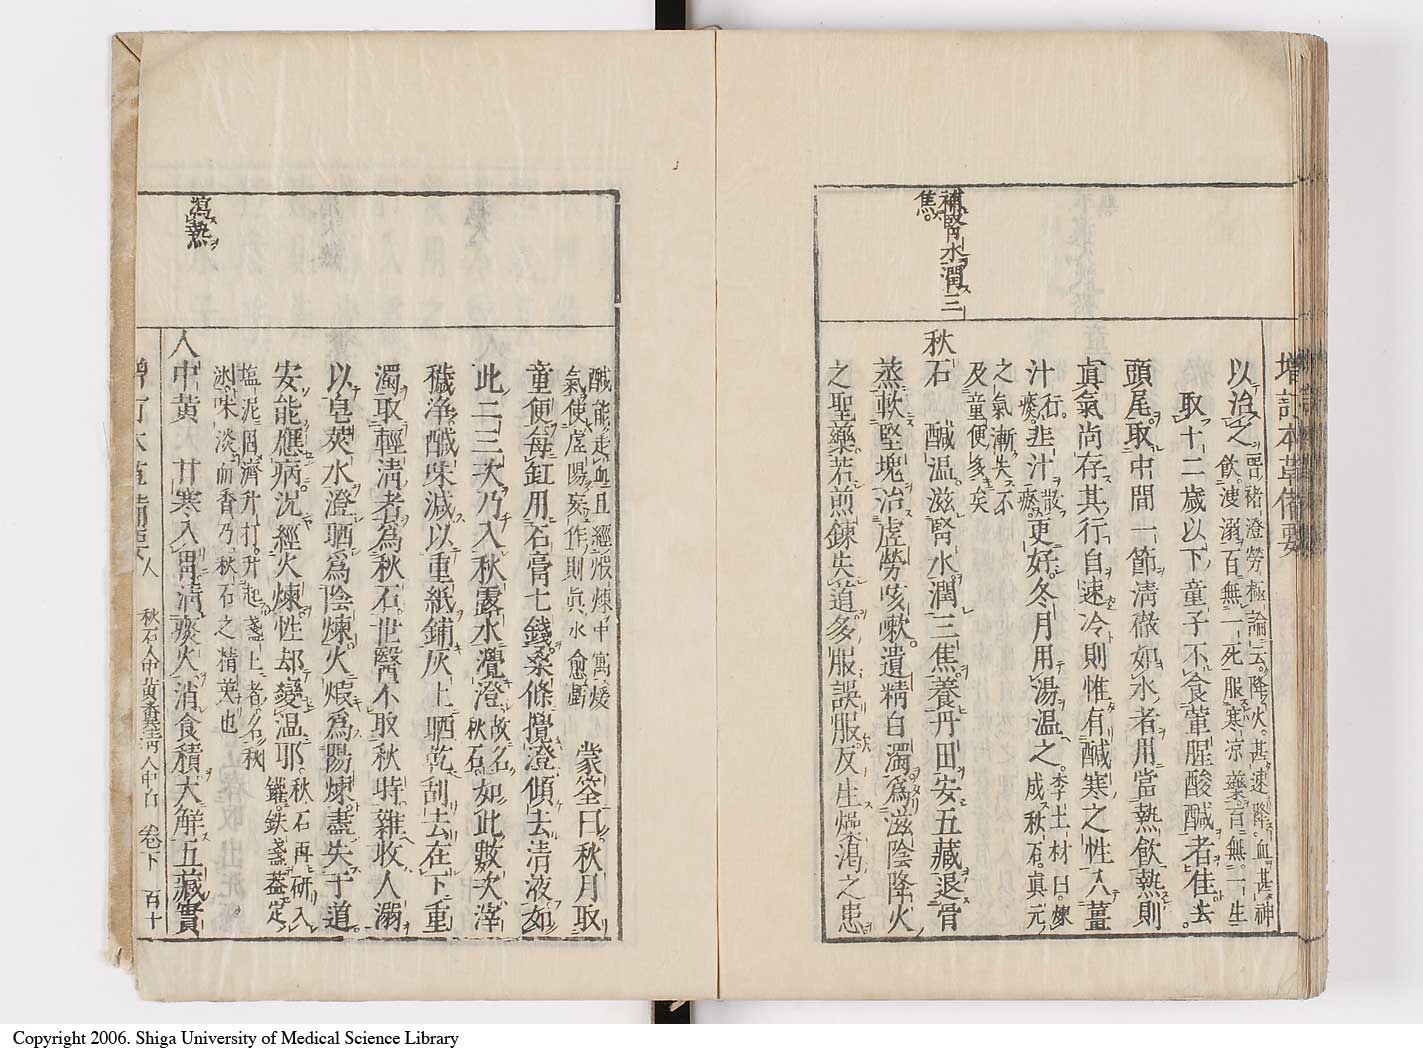 增訂本草備要
補腎水潤三
焦
以治之 晋褚澄勞極論云降火甚速降血甚神
飲溲溺百無一死服寒凉藥百無一生
取十二歲以下童子不食葷腥酸鹹者佳去
頭尾取中間一節清徹如水者用當熱飲熱則
真氣尚存其行自速冷則惟有鹹寒之性入薑
汁行痰韭汁散瘀更好冬月用湯温之李士材曰煉成秋石真元
之氣漸失不
及童便多矣
秋石 鹹温滋腎水潤三焦養丹田安五藏退骨
蒸軟堅塊治虛勞咳嗽遺精白濁爲滋陰降火
之聖藥若煎鍊失道多服誤服反生燥渴之患
瀉熱
鹹能走血且經煅煉中寓煖
氣使虛陽妄作則真水愈虧 蒙筌曰秋月取
童便每缸用石膏七錢桑條攪澄傾去清液如
此二三次乃入秋露水攪澄故名秋石如此數次滓
穢净鹹味減以重紙鋪灰上晒乾刮去在下重
濁取輕清者為秋石世醫不取秋時雜收人溺
以皂莢水澄晒爲陰煉火煅爲陽煉盡失于道
安能應病況經火煉性却變温耶秋石再研入罐鉄盞蓋定
塩泥固濟升打升起盞上者名秋
冰味淡而香乃秋石之精英也
人中黃 甘寒入胃清痰火消食積大解五藏實
增訂本草備要 人 秋石人中黄 卷下 百十